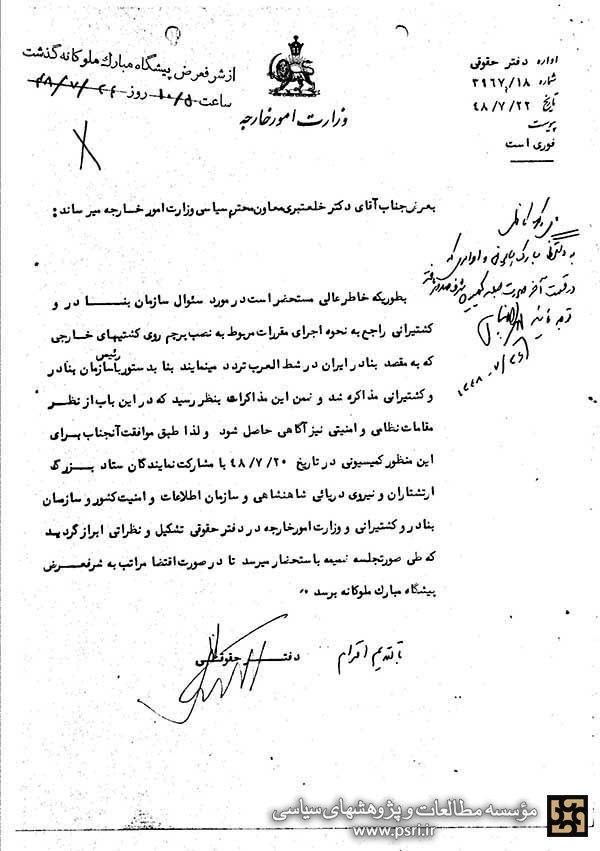 اداره دفتر حقوقی
شماره ۳۹۶۷/۱۸
تاریخ ۴۸/۷/۲۲
پیوست
فوری است
وزارت امور خارجه
از شرفعرض پیشگاه مبارك ملوکانه گذشت
ساعت ۱۰/۵ روز ۴۸/۷/۲۴
بعرض جناب آقای دکتر خلعتبری معاون محترم سیاسی وزارت امور خارجه میرساند :
بطوریکه خاطر عالی مستحضر است در مورد سئوال سازمان بنادر و
کشتیرانی راجع به نحوه اجرای مقررات مربوط به نصب پرچم روی کشتیهای خارجی
که به مقصد بنادر ایران در شط العرب تردد مینمایند بنا بدستور با رئیس سازمان بنادر
و کشتیرانی مذاکره شد و ضمن این مذاکرات بنظر رسید که در این باب از نظر
مقامات نظامی و امنیتی نیز آگاهی حاصل شود و لذا طبق موافقت آنجناب برای
این منظور کمیسیونی در تاریخ ۴۸/۷/۲۰ با مشارکت نمایندگان ستاد بزرگ
ارتشتاران و نیروی دریائی شاهنشاهی و سازمان اطلاعات و امنیت کشور و سازمان
بنادر و کشتیرانی و وزارت امور خارجه در دفتر حقوقی تشکیل و نظراتی ابراز گردید
که طی صورتجلسه ضمیمه باستحضار میرسد تا در صورت اقتضا مراتب به شرفعرض
پیشگاه مبارك ملوکانه برسد ٪
با تقدیم احترام
دفتر حقوقی
مؤسسه مطالعات و پژوهشهای سیاسی
www.psri.ir